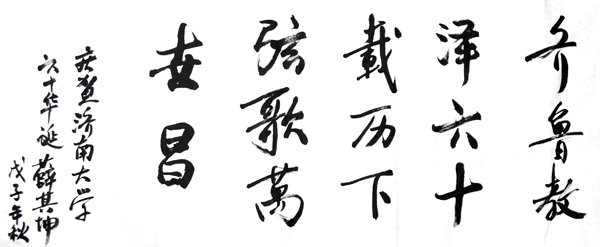 齐鲁教
泽六十
載历下
弦歌萬
世昌
庆贺济南大学
六十华诞 薛其坤
戊子年秋